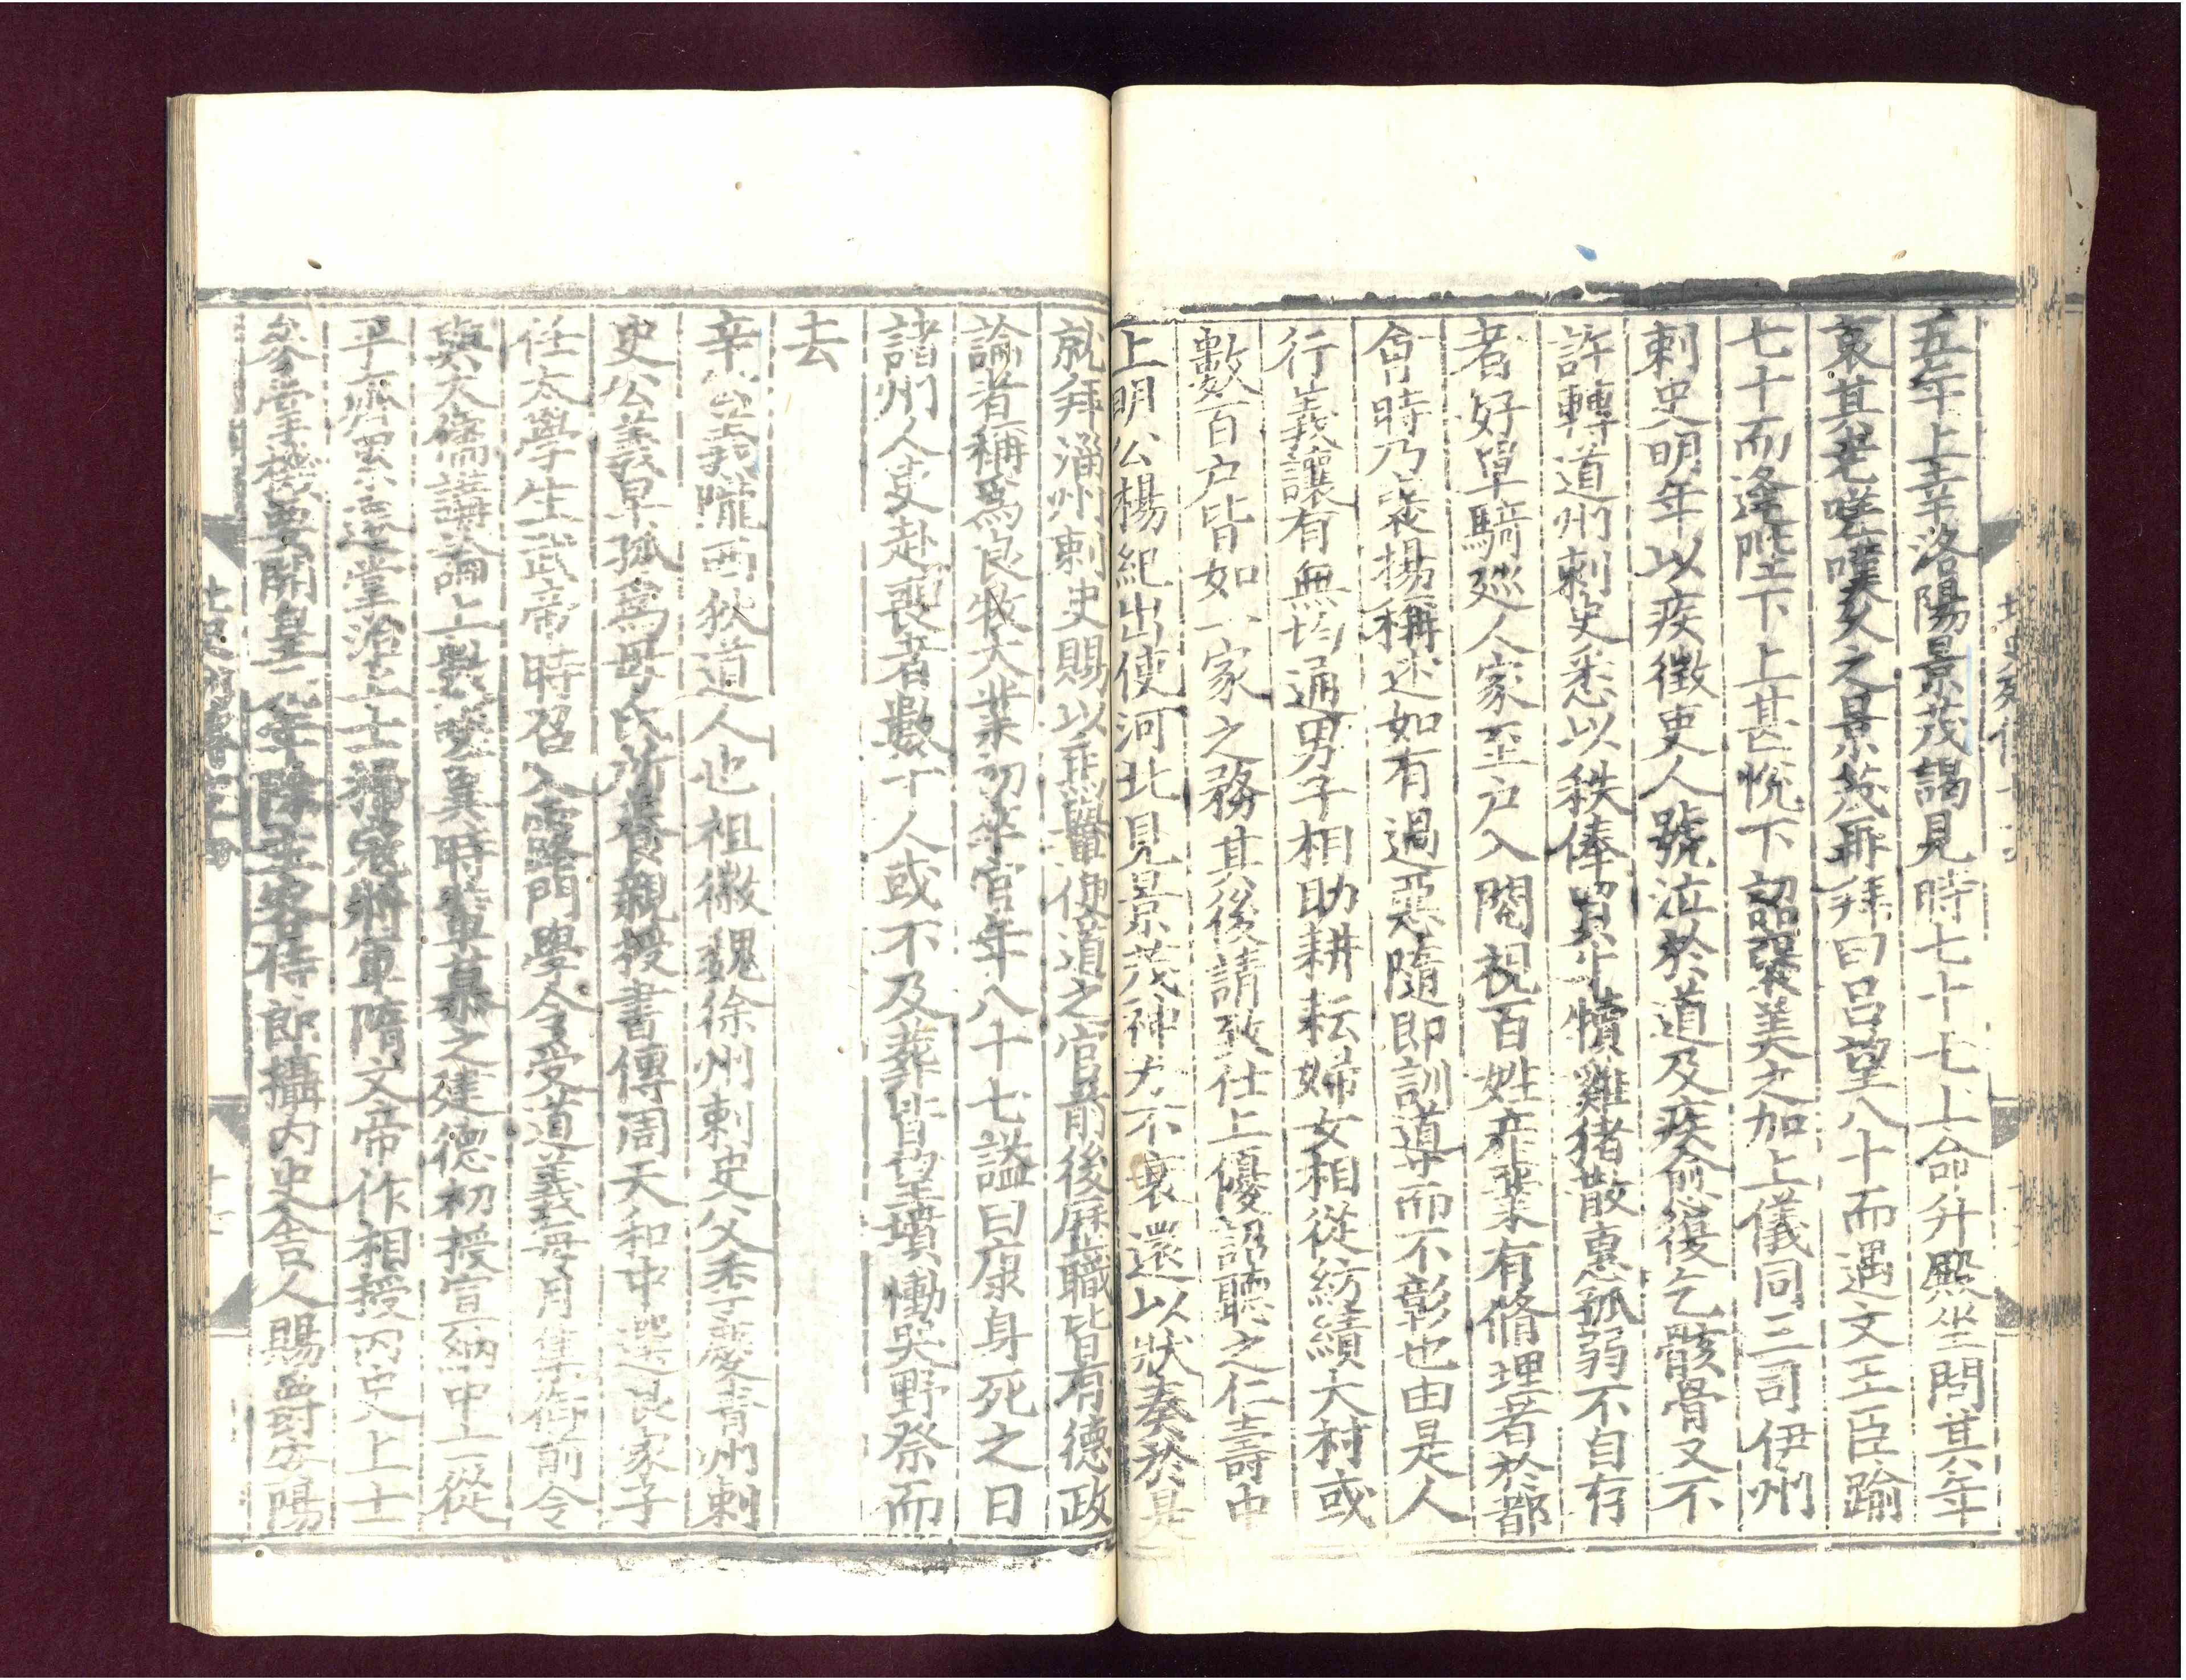 五年上幸洛陽景茂謁見時七十七上命升殿坐問其年
哀其老嗟嘆久之景茂再拜曰呂望八十而遇文王臣踰
七十而逢陛下上甚悅下詔褒美之加上儀同三司伊州
刺史明年以疾徵吏人號泣於道及疾愈復乞骸骨又不
許轉道州刺史悉以秩俸買牛犢雞猪散惠孤弱不自存
者好單騎廵人家至户入閱視百姓產業有脩理者於都
會時乃褒揚稱述如有過惡隨即訓導而不彰也由是人
行義讓有無均通男子相助耕耘婦女相從紡績大村或
數百户皆如一家之務其後請致仕上優詔聽之仁壽中
上明公楊紀出使河北見景茂神力不衰還以狀奏於是
就拜淄州刺史賜以馬轝便道之官前後歷職皆有德政
論者稱爲良牧大業初卒官年八十七謚曰康身死之日
諸州人吏赴喪者數十人或不及葬皆望墳慟哭野祭而
去
辛公義隴西狄道人也祖徽魏徐州刺史父季慶青州刺
史公義早孤爲母氏所養親授書傳周天和中選良家子
任太學生武帝時召入露門學令受道義每月集御前令
與大儒講論上數嗟異時輩慕之建德初授宣納中士從
平齊累遷掌治上士掃寇將軍隋文帝作相授內史上士
參掌機要開皇元年除主客侍郎攝內史舍人賜爵安陽
北史列傳七十四